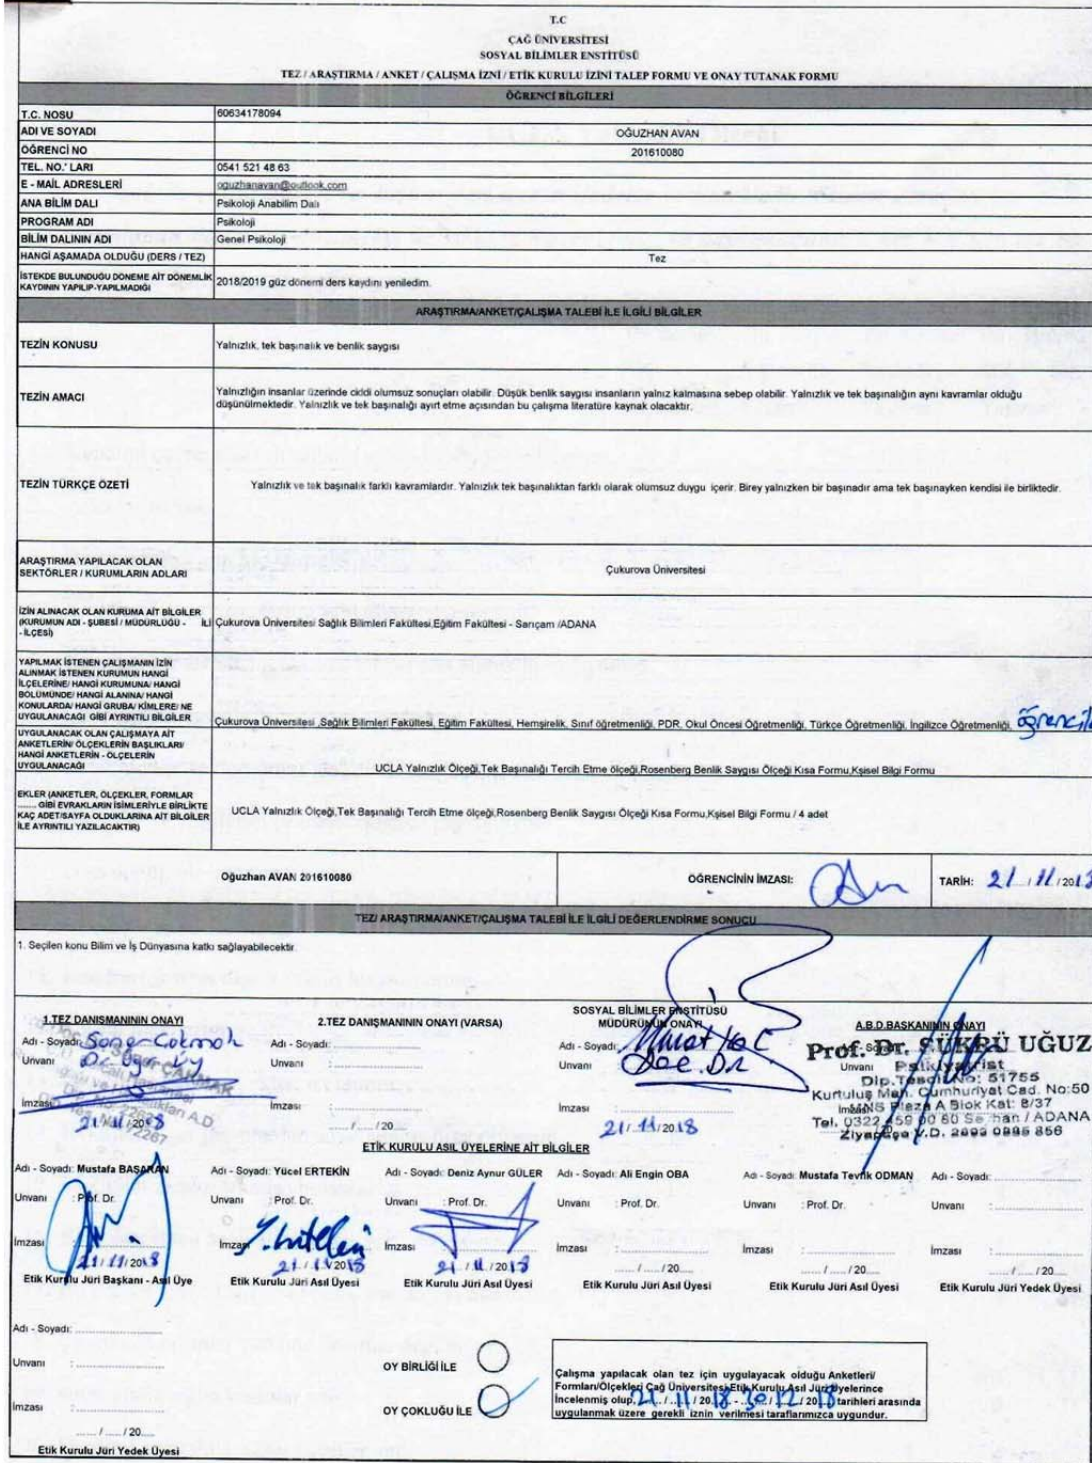 T.C
ÇAĞ ÜNİVERSİTESİ
SOSYAL BİLİMLER ENSTİTÜSÜ
TEZ / ARAŞTIRMA / ANKET / ÇALIŞMA İZNİ / ETİK KURULU İZİNİ TALEP FORMU VE ONAY TUTANAK FORMU
ÖĞRENCİ BİLGİLERİ
T.C. NOSU 60634178094
ADI VE SOYADI OĞUZHAN AVAN
ÖĞRENCİ NO 201610080
TEL. NO.' LARI 0541 521 48 63
E - MAİL ADRESLERİ oguzhanavan@outlook.com
ANA BİLİM DALI Psikoloji Anabilim Dalı
PROGRAM ADI Psikoloji
BİLİM DALININ ADI Genel Psikoloji
HANGİ AŞAMADA OLDUĞU (DERS / TEZ) Tez
İSTEKDE BULUNDUĞU DÖNEME AİT DÖNEMLİK
KAYDININ YAPILIP-YAPILMADIĞI 2018/2019 güz dönemi ders kaydını yeniledim.
ARAŞTIRMA/ANKET/ÇALIŞMA TALEBİ İLE İLGİLİ BİLGİLER
TEZİN KONUSU Yalnızlık, tek başınalık ve benlik saygısı
TEZİN AMACI Yalnızlığın insanlar üzerinde ciddi olumsuz sonuçları olabilir. Düşük benlik saygısı insanların yalnız kalmasına sebep olabilir. Yalnızlık ve tek başınalığın aynı kavramlar olduğu
düşünülmektedir. Yalnızlık ve tek başınalığı ayırt etme açısından bu çalışma literatüre kaynak olacaktır.
TEZİN TÜRKÇE ÖZETİ Yalnızlık ve tek başınalık farklı kavramlardır. Yalnızlık tek başınalıktan farklı olarak olumsuz duygu içerir. Birey yalnızken bir başınadır ama tek başınayken kendisi ile birliktedir.
ARAŞTIRMA YAPILACAK OLAN
SEKTÖRLER / KURUMLARIN ADLARI Çukurova Üniversitesi
İZİN ALINACAK OLAN KURUMA AİT BİLGİLER
(KURUMUN ADI - ŞUBESİ / MÜDÜRLÜĞÜ - İLİ
- İLÇESİ) Çukurova Üniversitesi Sağlık Bilimleri Fakültesi,Eğitim Fakültesi - Sarıçam /ADANA
YAPILMAK İSTENEN ÇALIŞMANIN İZİN
ALINMAK İSTENEN KURUMUN HANGİ
İLÇELERİNE/ HANGİ KURUMUNA/ HANGİ
BÖLÜMÜNDE/ HANGİ ALANINA/ HANGİ
KONULARDA/ HANGİ GRUBA/ KİMLERE/ NE
UYGULANACAĞI GİBİ AYRINTILI BİLGİLER
Çukurova Üniversitesi ,Sağlık Bilimleri Fakültesi, Eğitim Fakültesi, Hemşirelik, Sınıf öğretmenliği, PDR, Okul Öncesi Öğretmenliği, Türkçe Öğretmenliği, İngilizce Öğretmenliği,
UYGULANACAK OLAN ÇALIŞMAYA AİT
ANKETLERİN/ ÖLÇEKLERİN BAŞLIKLARI/
HANGİ ANKETLERİN - ÖLÇELERİN
UYGULANACAĞI
UCLA Yalnızlık Ölçeği,Tek Başınalığı Tercih Etme ölçeği,Rosenberg Benlik Saygısı Ölçeği Kısa Formu,Kşisel Bilgi Formu
EKLER (ANKETLER, ÖLÇEKLER, FORMLAR
....... GİBİ EVRAKLARIN İSİMLERİYLE BİRLİKTE
KAÇ ADET/SAYFA OLDUKLARINA AİT BİLGİLER
İLE AYRINTILI YAZILACAKTIR)
UCLA Yalnızlık Ölçeği,Tek Başınalığı Tercih Etme ölçeği,Rosenberg Benlik Saygısı Ölçeği Kısa Formu,Kşisel Bilgi Formu / 4 adet
Oğuzhan AVAN 201610080 ÖĞRENCİNİN İMZASI: TARİH: 21 / 11 / 201
TEZ/ ARAŞTIRMA/ANKET/ÇALIŞMA TALEBİ İLE İLGİLİ DEĞERLENDİRME SONUCU
1. Seçilen konu Bilim ve İş Dünyasına katkı sağlayabilecektir
1.TEZ DANIŞMANININ ONAYI 2.TEZ DANIŞMANININ ONAYI (VARSA) SOSYAL BİLİMLER ENSTİTÜSÜ
MÜDÜRÜNÜN ONAYI A.B.D.BAŞKANININ ONAYI
Adı - Soyadı: Adı - Soyadı: Adı - Soyadı: Murat Koç Prof. Dr. ŞÜKRÜ UĞUZ
Unvanı Unvanı Unvanı Doç. Dr. Unvanı Psikiyatrist
Dip. Tescil No: 51755
Kurtuluş Mah. Cumhuriyet Cad. No:50
Plaza A Blok Kat: 8/37
Tel. 0322 459 00 60 Seyhan / ADANA
Ziyapaşa V.D.
İmzası İmzası İmzası
21/11/2018 / /20 21/11/2018
ETİK KURULU ASIL ÜYELERİNE AİT BİLGİLER
Adı - Soyadı: Mustafa BAŞARAN Adı - Soyadı: Yücel ERTEKİN Adı - Soyadı: Deniz Aynur GÜLER Adı - Soyadı: Ali Engin OBA Adı - Soyadı: Mustafa Tevfik ODMAN Adı - Soyadı:
Unvanı : Prof. Dr. Unvanı : Prof. Dr. Unvanı : Prof. Dr. Unvanı : Prof. Dr. Unvanı : Prof. Dr. Unvanı :
İmzası İmzası İmzası İmzası : İmzası : İmzası :
21/11/2018 21/11/2018 21/11/2018 / /20 / /20 / /20
Etik Kurulu Jüri Başkanı - Asıl Üye Etik Kurulu Jüri Asıl Üyesi Etik Kurulu Jüri Asıl Üyesi Etik Kurulu Jüri Asıl Üyesi Etik Kurulu Jüri Asıl Üyesi Etik Kurulu Jüri Yedek Üyesi
Adı - Soyadı:
Unvanı :
İmzası :
/ /20
Etik Kurulu Jüri Yedek Üyesi
OY BİRLİĞİ İLE
OY ÇOKLUĞU İLE
Çalışma yapılacak olan tez için uygulayacak olduğu Anketleri/
Formları/Ölçekleri Çağ Üniversitesi Etik Kurulu Asıl Jüri Üyelerince
İncelenmiş olup, 21 / 11 / 2018 - 30 / 12 / 2018 tarihleri arasında
uygulanmak üzere gerekli iznin verilmesi taraflarımızca uygundur.